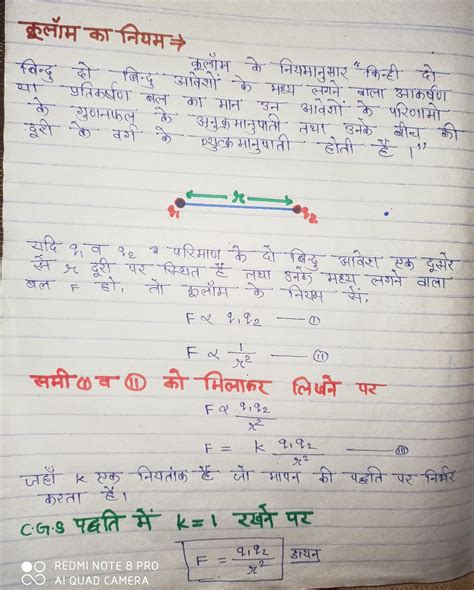 कूलॉम का नियम →
कूलॉम के नियमानुसार "किन्ही दो
बिन्दु दो बिन्दु आवेशों के मध्य लगने वाला आकर्षण
या प्रतिकर्षण बल का मान उन आवेशों के परिणामो
के गुणनफल के अनुक्रमानुपाती तथा उनके बीच की
दूरी के वर्ग के व्युत्क्रमानुपाती होती है।"
r
q₁ q₂
यदि q₁ व q₂ परिमाण के दो बिन्दु आवेश एक दूसरे
से r दूरी पर स्थित है तथा उनके मध्य लगने वाला
बल F हो, तो कूलॉम के नियम से,
F ∝ q₁q₂ — ①
F ∝ 1/r² — ⑪
समी ① व ⑪ को मिलाकर लिखने पर
F ∝ q₁q₂/r²
F = K q₁q₂/r² —
जहाँ K एक नियतांक है जो मापन की पद्धति पर निर्भर
करता है।
C.G.S पद्धति में K=1 रखने पर
F = q₁q₂/r² डायन
REDMI NOTE 8 PRO
AI QUAD CAMERA